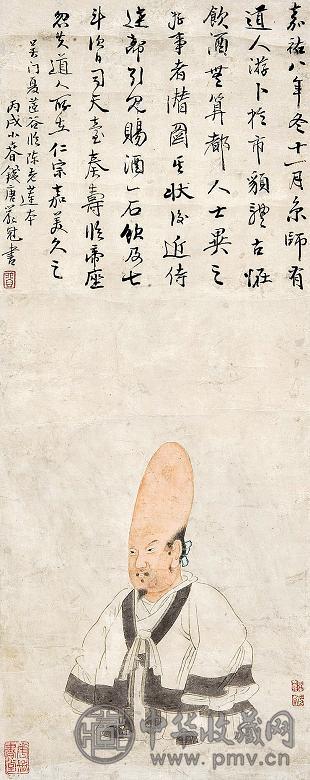 嘉祐八年冬十一月京師有
道人游卜於市貌體古怪
飲酒無算都人士異之
好事者潜圖其狀後近侍
達帝引見賜酒一石飲及七
斗次日司天臺奏壽臨帝座
忽失道人所在仁宗嘉美久之
吴门夏蓮谷临陈老蓮本
丙戌小春錢唐嚴冠書
中华收藏网
www.pmv.cn